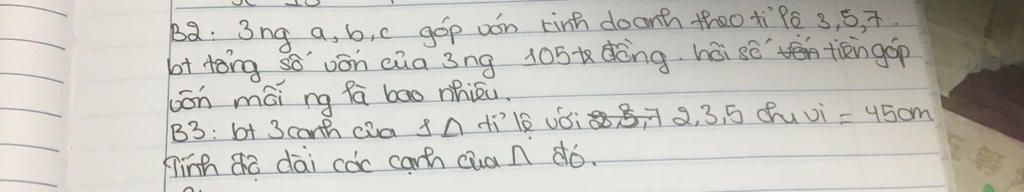 B2: 3ng a, b, c góp vốn kinh doanh theo tỉ lệ 3, 5, 7.
bt tổng số vốn của 3ng 105 tr đồng. hỏi số tiền góp
vốn mỗi ng là bao nhiêu.
B3: bt 3 cạnh của 1 Δ tỉ lệ với 2, 3, 5 chu vi = 45cm
Tính độ dài các cạnh của Δ đó.